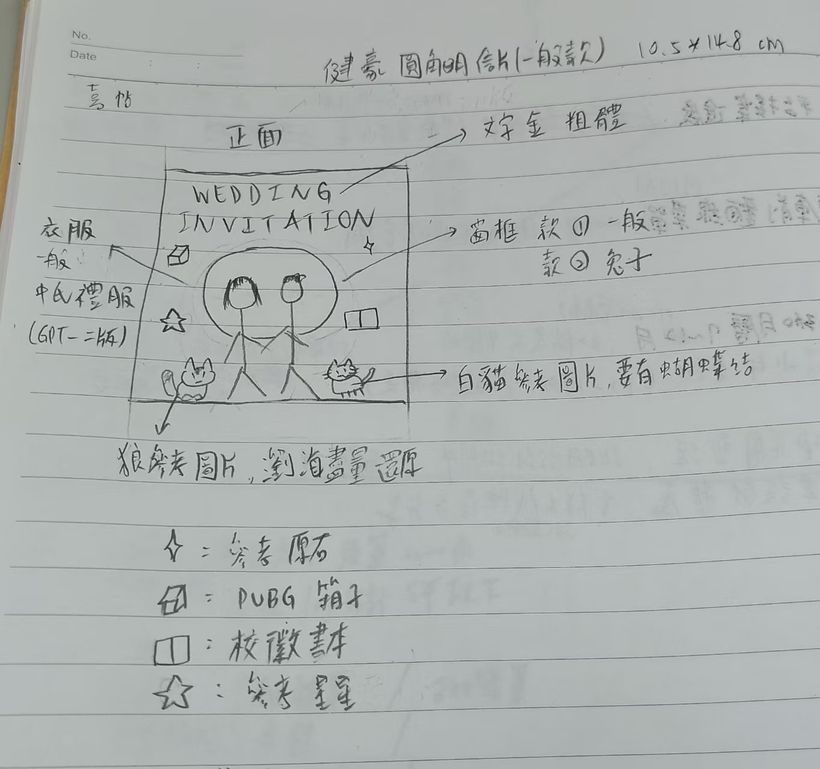 No.
Date
健豪 圓角明信片(一般款) 10.5×14.8 cm
喜帖
正面
文字金 粗體
WEDDING
INVITATION
衣服
一般
中式禮服
(GPT一二版)
窗框 款① 一般
款② 兔子
白貓參考圖片,要有蝴蝶結
狼參考圖片,瀏海盡量還原
: 參考 原石
: PUBG 箱子
: 校徽書本
: 參考 星星